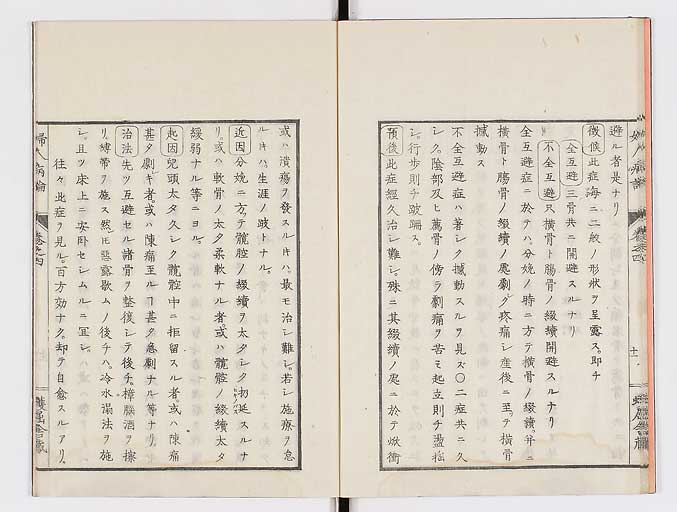 避ル者是ナリ
徴候此症毎ニ二般ノ形状ヲ呈露ス。即チ
全互避三骨共ニ開避スルナリ
不全互避只横骨ト腸骨ノ綴續開避スルナリ
全互避症ニ於テハ、分娩ノ時ニ方テ横骨ノ綴續。并ニ
横骨ト腸骨ノ綴續ノ處劇ク疼痛シ産後ニ至テ横骨
撼動ス
不全互避症ハ著シク撼動スルヲ見ズ〇二症共ニ久
シク陰部及ヒ薦骨ノ傍ラ劇痛ヲ苦ミ起立則チ
シ。行歩則チ跛
預後此症經久治シ難シ。殊ニ其綴續ノ處ニ於テ焮衝
或ハ潰瘍ヲ發スルキハ、最モ治シ難シ。若シ施療ヲ怠
ルキハ、生涯ノ跛トナル。
近因分娩ニ方テ髖腔ノ綴續ヲ太タシク
リ。或ハ軟骨ノ太タ柔軟ナル者。或ハ髖腔ノ綴續太タ
緩弱ナル等ニヨル。
起因兒頭太タ久シク髖腔中ニ拒留スル者。或ハ陳痛
甚タ劇キ者。或ハ陳痛至ルヿ甚タ急劇ナル等ナリ。
治法先ツ互避セル諸骨ヲ整復シテ後チ。樟腦酒ヲ擦
リ。縛帶ヲ施ス然ノ後チハ、冷水溻法ヲ施
シ。且ツ床上ニ安臥セシムルニ宜シ。
往々此症ヲ見ル。百方効ナク。却テ自愈スルアリ。
婦人病論 卷之四